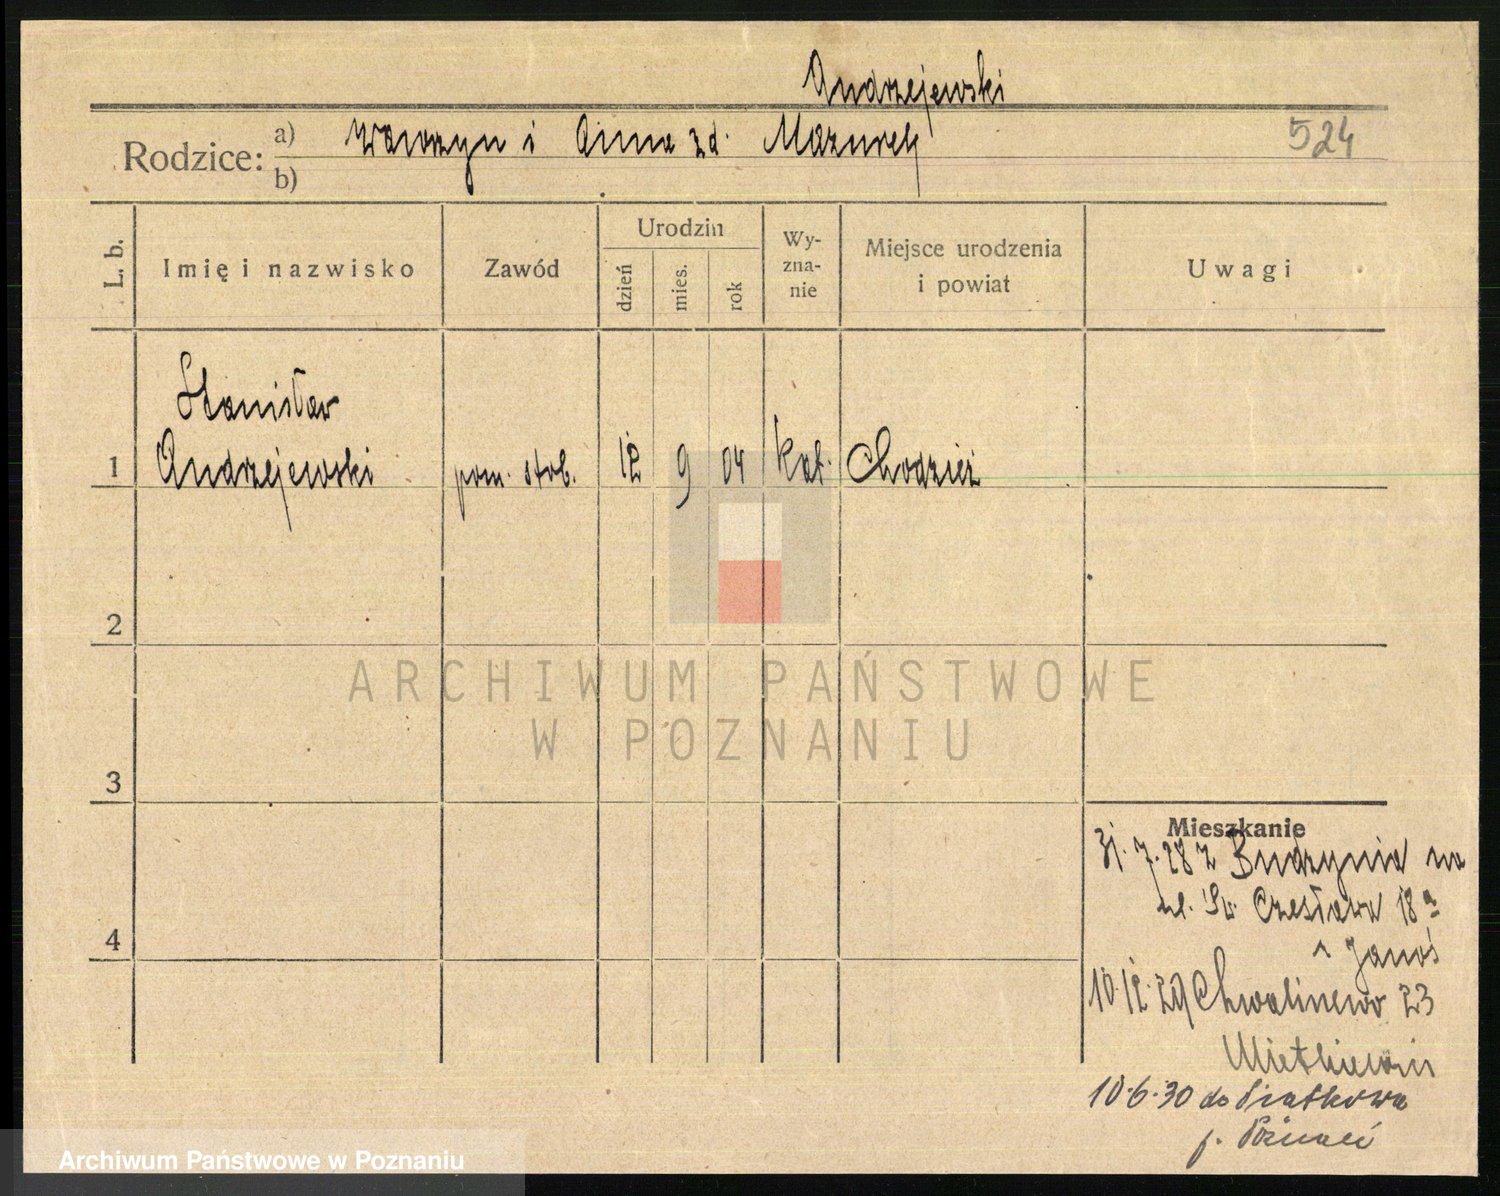 Andrzejewski
Rodzice: a) Wawrzyn i Anna zd. Mazurek
524
b)
L. b.
Imię i nazwisko
Zawód
Urodzin
dzień
mies.
rok
Wy-
zna-
nie
Miejsce urodzenia
i powiat
Uwagi
Stanisław
1 Andrzejewski pom. stol. 12 9 04 kat. Chodzież
2
ARCHIWUM PAŃSTWOWE
W POZNANIU
3
Mieszkanie
31.7.28 z Budzynia na
ul. Św. Czesława 18a
4
Janoś
10.12.29 Chwaliszewo 23
10.6.30 do Piątkowa
p. Poznań
Archiwum Państwowe w Poznaniu